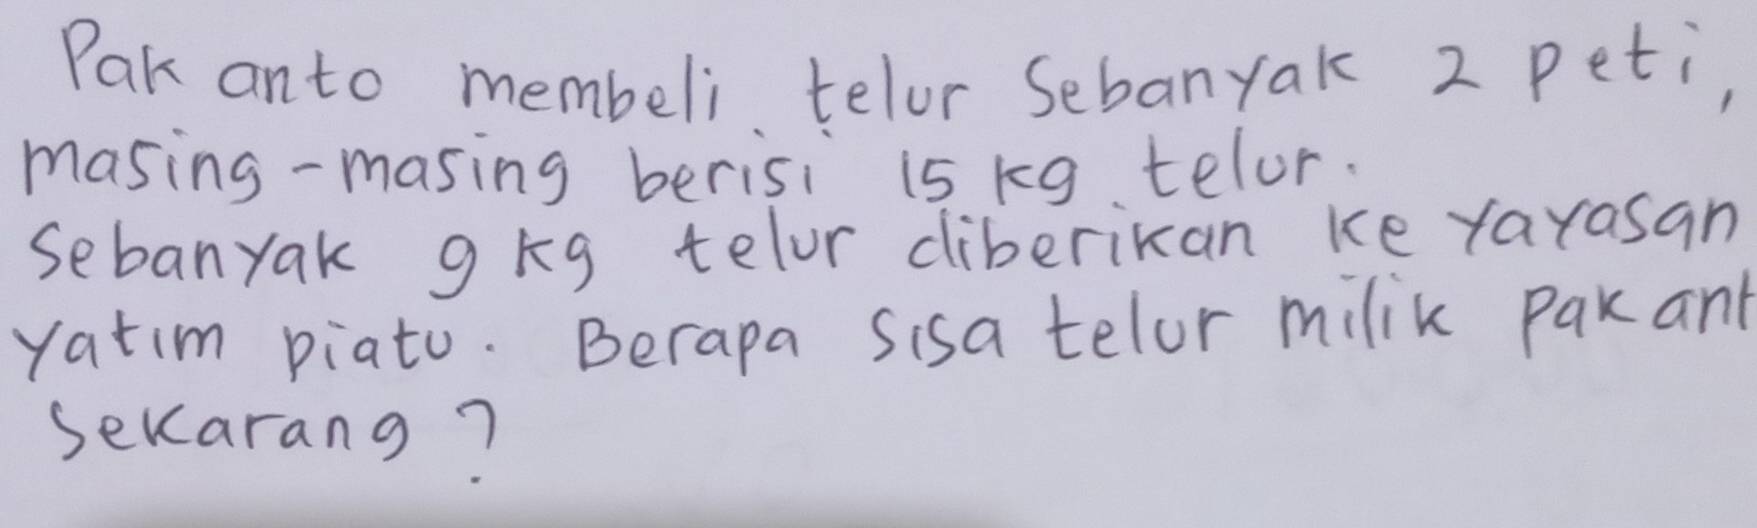 Pak anto membeli telur Sebanyak 2 peti,
masing-masing berisi 15 kg telur.
Sebanyak 9 kg telur diberikan ke yayasan
yatim piatu. Berapa sisa telur milik pak ant
Sekarang?